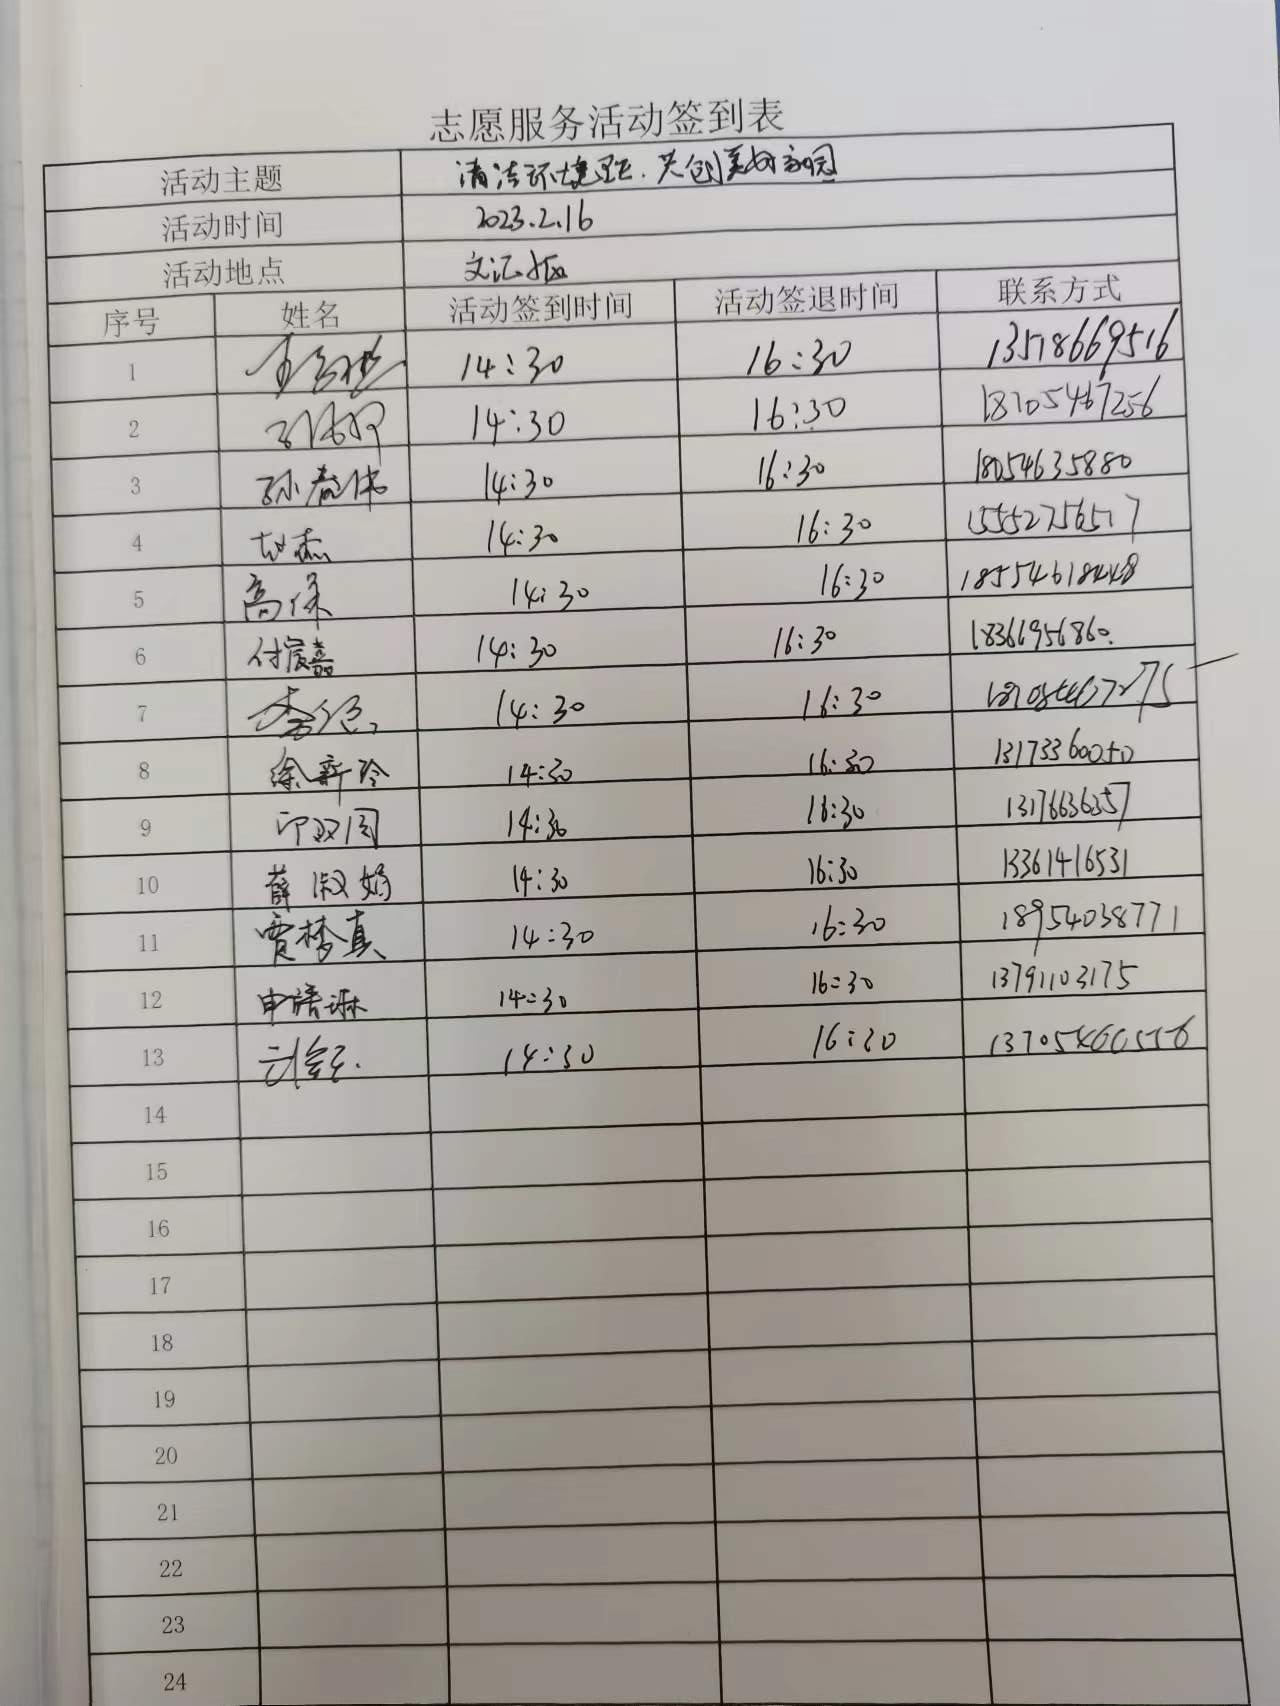 志愿服务活动签到表
活动主题 清洁环境 共创美好家园
活动时间 2023.2.16
活动地点 文汇
序号 姓名 活动签到时间 活动签退时间 联系方式
1 14:30 16:30 13518669516
2 14:30 16:30 18705467256
3 孙春伟 14:30 16:30 18054635880
4 赵杰 14:30 16:30 15552756517
5 高保 14:30 16:30 18554618448
6 付宸嘉 14:30 16:30 18366956860
7 14:30 16:30
8 徐新玲 14:30 16:30 13173360050
9 印双周 14:30 16:30 1317663657
10 薛淑娟 14:30 16:30 13361416531
11 贾梦真 14:30 16:30 18954038771
12 申婧琳 14:30 16:30 13791103175
13 14:30 16:30
14
15
16
17
18
19
20
21
22
23
24